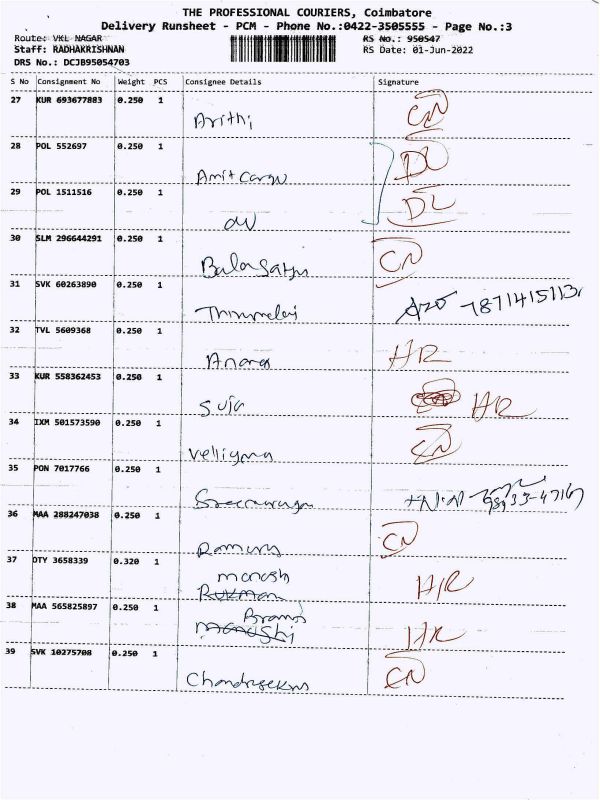 THE PROFESSIONAL COURIERS, Coimbatore
Delivery Runsheet - PCM - Phone No.:0422-3505555 - Page No.:3
Route: VKL NAGAR RS No.: 950547
Staff: RADHAKRISHNAN RS Date: 01-Jun-2022
DRS No.: DCJB95054703
S No Consignment No Weight PCS Consignee Details Signature
27 KUR 693677883 0.250 1
Arithi CN
28 POL 552697 0.250 1
Amit Cargo DL
29 POL 1511516 0.250 1
DL
30 SLM 296644291 0.250 1
CN
31 SVK 60263890 0.250 1
7871415113
32 TVL 5609368 0.250 1
HR
33 KUR 558362453 0.250 1
Suja HR
34 IXM 501573590 0.250 1
CN
35 PON 7017766 0.250 1
36 MAA 288247038 0.250 1
CN
37 OTY 3658339 0.320 1
Manash HR
38 MAA 565825897 0.250 1
HR
39 SVK 10275708 0.250 1
CN